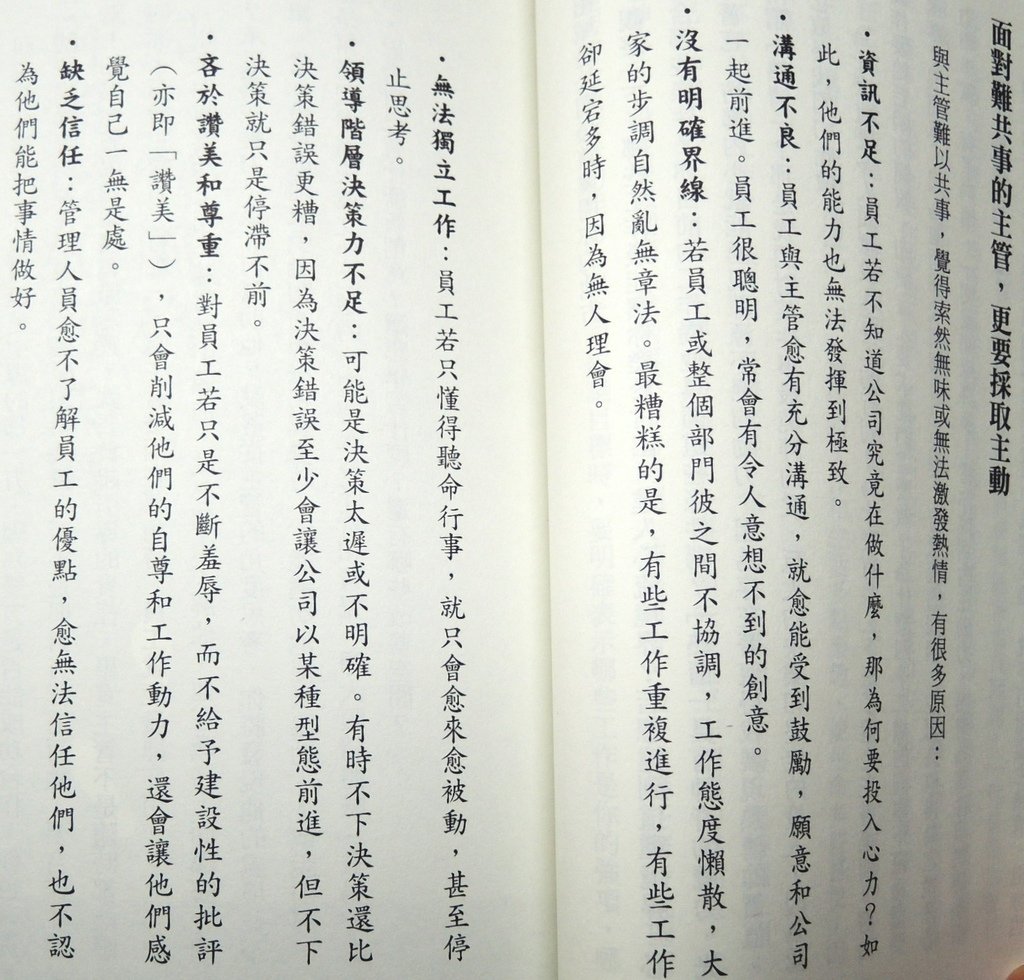 面對難共事的主管，更要採取主動
與主管難以共事，覺得索然無味或無法激發熱情，有很多原因：
·資訊不足：員工若不知道公司究竟在做什麼，那為何要投入心力？如
此，他們的能力也無法發揮到極致。
·溝通不良：員工與主管愈有充分溝通，就愈能受到鼓勵，願意和公司
一起前進。員工很聰明，常會有令人意想不到的創意。
·沒有明確界線：若員工或整個部門彼此之間不協調，工作態度懶散，大
家的步調自然亂無章法。最糟糕的是，有些工作重複進行，有些工作
卻延宕多時，因為無人理會。
·無法獨立工作：員工若只懂得聽命行事，就只會愈來愈被動，甚至停
止思考。
·領導階層決策力不足：可能是決策太遲或不明確。有時不下決策還比
決策錯誤更糟，因為決策錯誤至少會讓公司以某種型態前進，但不下
決策就只是停滯不前。
·吝於讚美和尊重：對員工若只是不斷羞辱，而不給予建設性的批評
（亦即「讚美」），只會削減他們的自尊和工作動力，還會讓他們感
覺自己一無是處。
·缺乏信任：管理人員愈不了解員工的優點，愈無法信任他們，也不認
為他們能把事情做好。